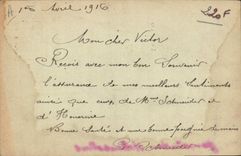 1er Avril 1916
220F
Mon cher Victor
Reçois avec mon bon Souvenir
l'assurance de mes meilleurs Sentiments
ainsi que ceux de Mme Schneider et
d'Honorine
Bonne Santé et une bonne poignée de main
Schneider